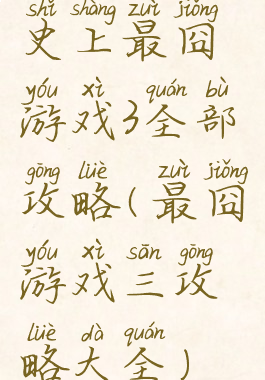 shǐ shàng zuì jiǒng
史上最囧
yóu xì quán bù
游戏3全部
gōng lüè zuì jiǒng
攻略(最囧
yóu xì sān gōng
游戏三攻
lüè dà quán
略大全)